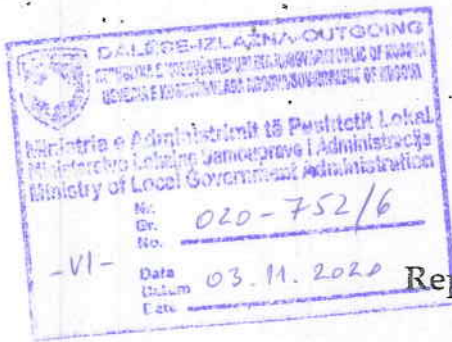 DALËSE-IZLAZNA-OUTGOING
Ministria e Administrimit të Pushtetit Lokal
Ministarstvo Lokalne Samouprave i Administracije
Ministry of Local Government Administration
Nr.
Br.
No. 020-752/6
-VI-
Data
Datum 03.11.2020
Date
Rep